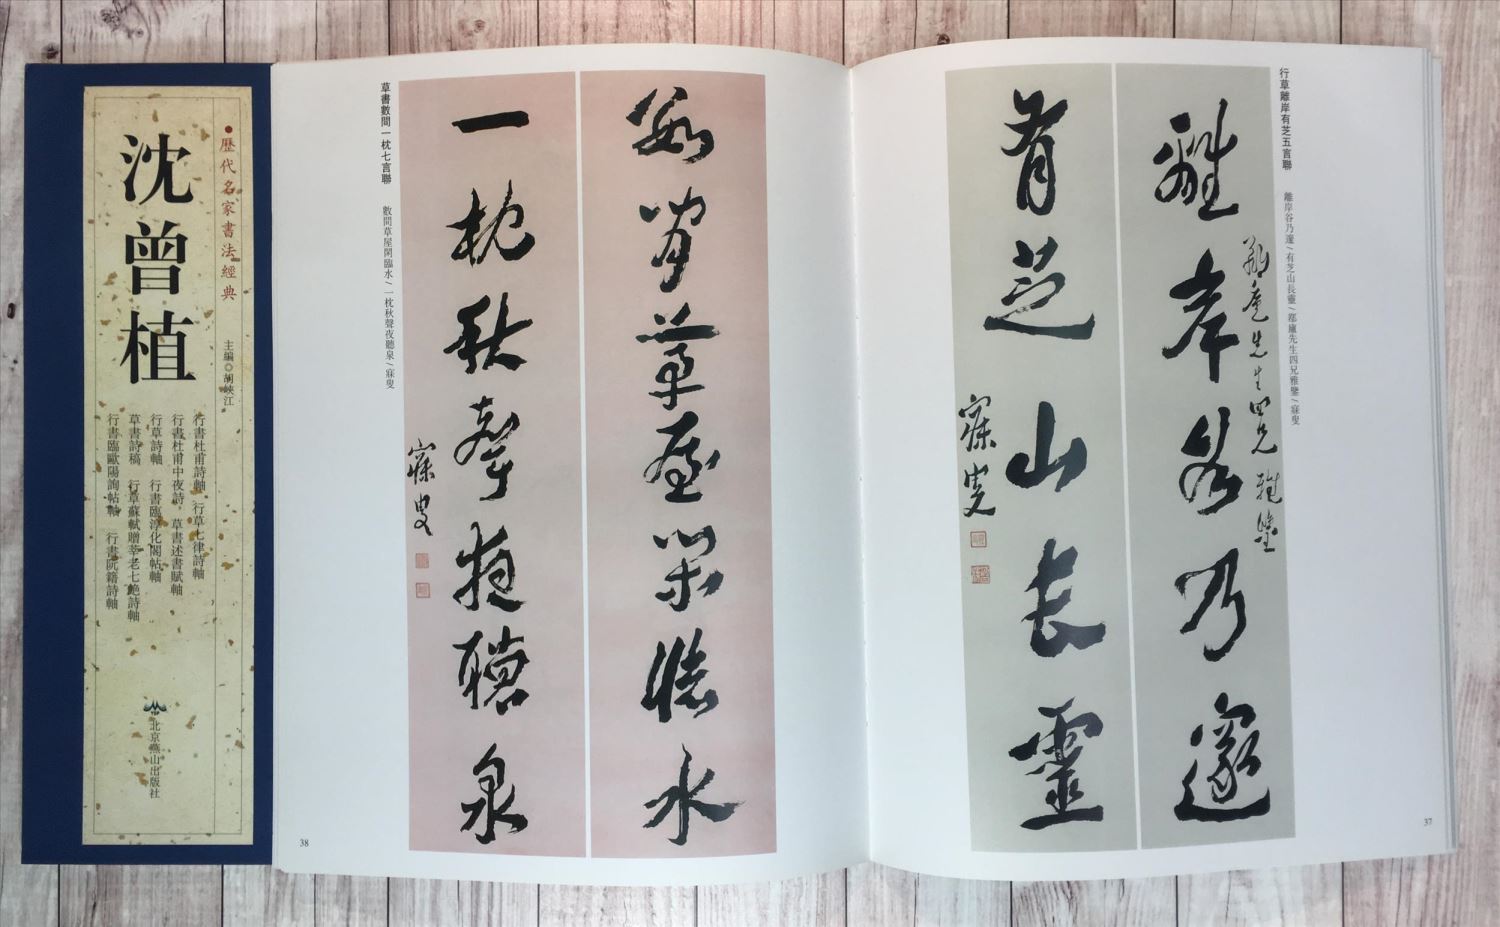 歷代名家書法經典
沈曾植
主編◎胡峽江
行書杜甫詩軸 行草七律詩軸
行書杜甫中夜詩 草書述書賦軸
行草詩軸 行書臨淳化閣帖軸
草書詩稿 行草蘇軾贈莘老七絶詩軸
行書臨歐陽詢帖軸 行書阮籍詩軸
北京燕山出版社
行草離岸有芝五言聯
離岸谷乃邃/有芝山長靈/鄰廬先生四兄雅鑒/寐叟
離岸谷乃邃
先生四兄 雅鑒
有芝山長靈
寐叟
37
數間草屋閑臨水
一枕秋聲夜聽泉
寐叟
草書數間一枕七言聯
數間草屋閑臨水/一枕秋聲夜聽泉/寐叟
38